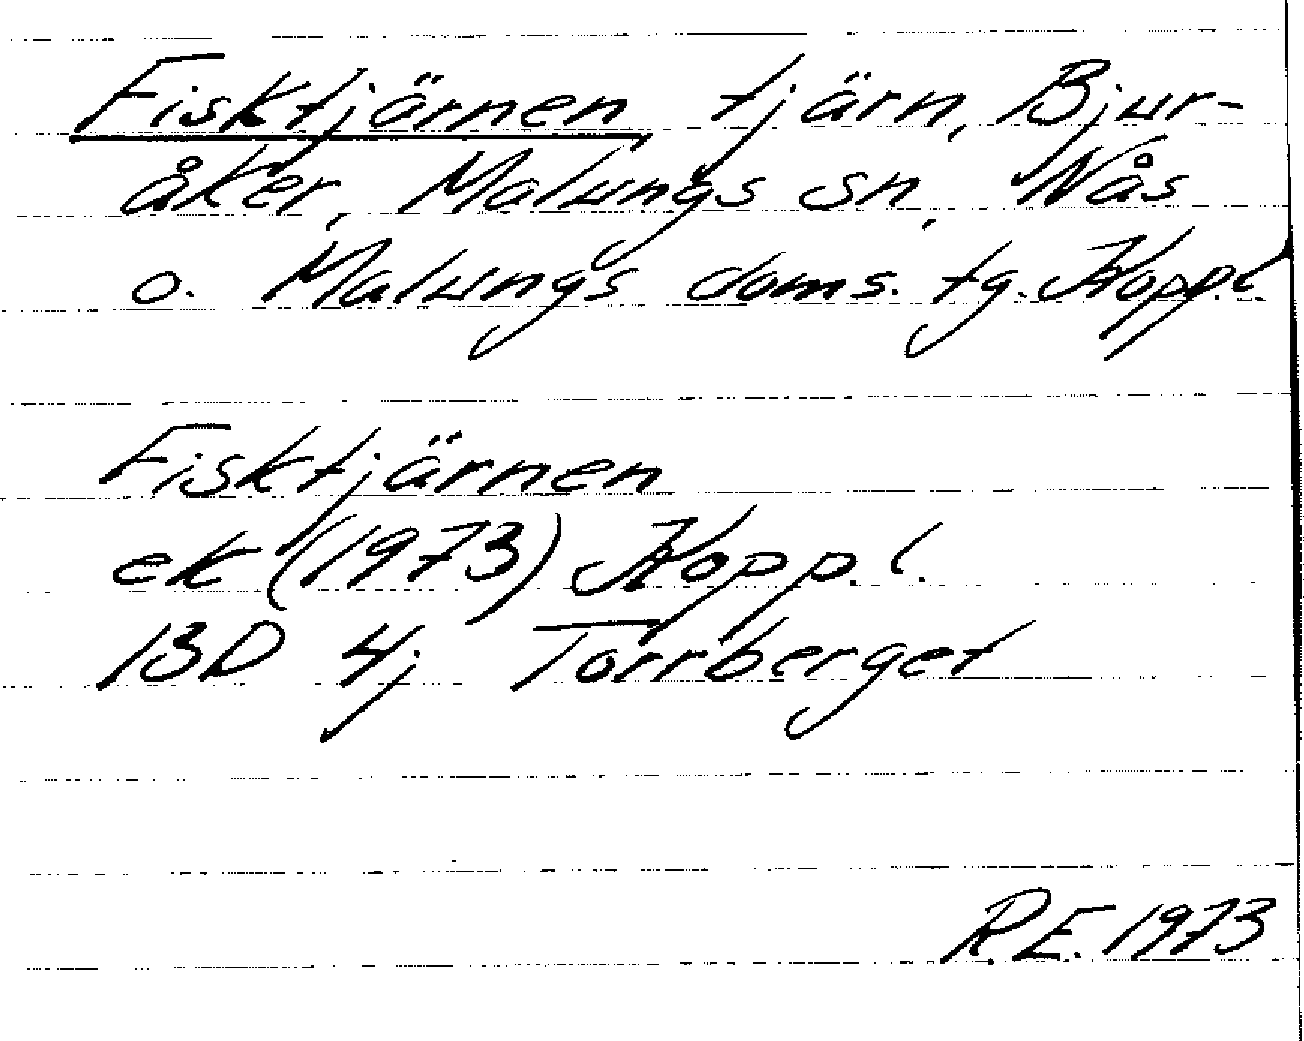 Fisktjärnen, tjärn, Bjur-
åker, Malungs sn, Nås
o. Malungs doms. tg. Kopp.l.
Fisktjärnen
ek (1973) Kopp. l.
13D 4j Torrberget
R.E. 1973